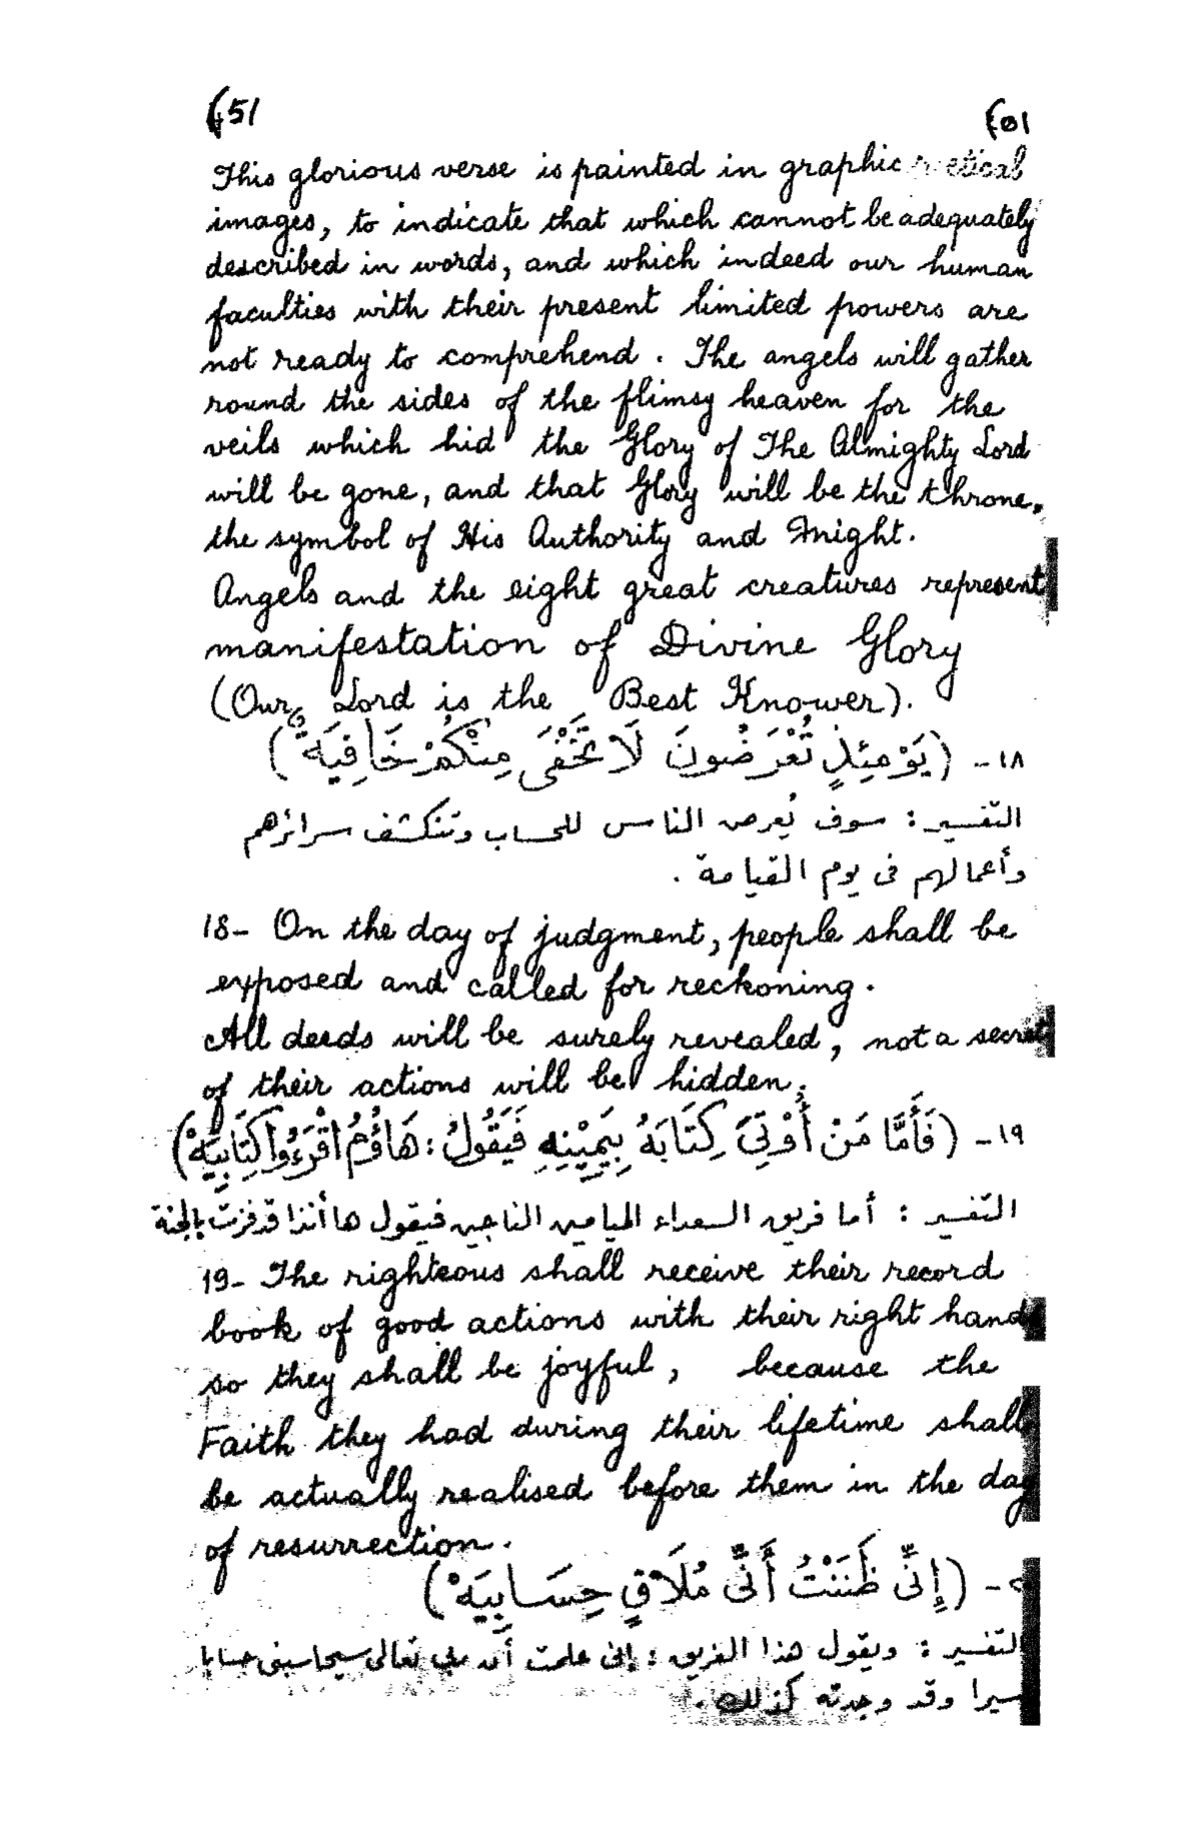 51
٥١
This glorious verse is painted in graphic
images, to indicate that which cannot be adequately
described in words, and which indeed our human
faculties with their present limited powers are
not ready to comprehend. The angels will gather
round the sides of the flimsy heaven for the
veils which hid the Glory of The Almighty Lord
will be gone, and that Glory will be the throne,
the symbol of His Authority and Might.
Angels and the eight great creatures represent
manifestation of Divine Glory
(Our Lord is the Best Knower).
١٨- (يَوْمَئِذٍ تُعْرَضُونَ لَا تَخْفَى مِنْكُمْ خَافِيَةٌ)
التفسير: سوف يُعرض الناس للحساب وتنكشف سرائرهم
وأعمالهم فى يوم القيامة.
18- On the day of judgment, people shall be
exposed and called for reckoning.
All deeds will be surely revealed, not a secret
of their actions will be hidden.
١٩- (فَأَمَّا مَنْ أُوْتِىَ كِتَابَهُ بِيَمِيْنِهِ فَيَقُولُ: هَاؤُمُ اقْرَءُوا كِتَابِيَهْ)
التفسير: أما فريق السعداء الميامين الناجين فيقول ها أنذا قد فزت بالجنة
19- The righteous shall receive their record
book of good actions with their right hand
so they shall be joyful, because the
Faith they had during their lifetime shall
be actually realised before them in the day
of resurrection.
- (إِنِّى ظَنَنْتُ أَنِّى مُلَاقٍ حِسَابِيَهْ)
التفسير: ويقول هذا الفريق: إنى علمت أن ربي تعالى سيحاسبنى حسابا
يسيرا وقد وجدته كذلك.